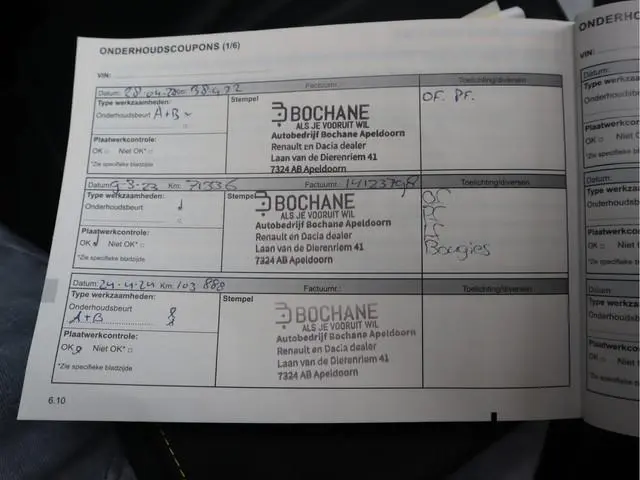 ONDERHOUDSCOUPONS (1/6)
VIN:
Datum: 28.04.20 38.472 Factuurnr.: Toelichting/diversen
Type werkzaamheden: Stempel OF. PF.
Onderhoudsbeurt A+B
BOCHANE
ALS JE VOORUIT WIL
Autobedrijf Bochane Apeldoorn
Renault en Dacia dealer
Laan van de Dierenriem 41
7324 AB Apeldoorn
Plaatwerkcontrole:
OK □ Niet OK* □
*Zie specifieke bladzijde
Datum: 9-3-23 Km: 71336 Factuurnr.: 14123798 Toelichting/diversen
Type werkzaamheden: Stempel
Onderhoudsbeurt
BOCHANE
ALS JE VOORUIT WIL
Autobedrijf Bochane Apeldoorn
Renault en Dacia dealer
Laan van de Dierenriem 41
7324 AB Apeldoorn
Bougies
Plaatwerkcontrole:
OK Niet OK* □
*Zie specifieke bladzijde
Datum: 24-4-24 Km: 103 888 Factuurnr.: Toelichting/diversen
Type werkzaamheden: Stempel
Onderhoudsbeurt
A+B
BOCHANE
ALS JE VOORUIT WIL
Autobedrijf Bochane Apeldoorn
Renault en Dacia dealer
Laan van de Dierenriem 41
7324 AB Apeldoorn
Plaatwerkcontrole:
OK Niet OK* □
*Zie specifieke bladzijde
6.10
ONDERHO
VIN:
Datum:
Type werkza
Onderhoudsb
Plaatwerkco